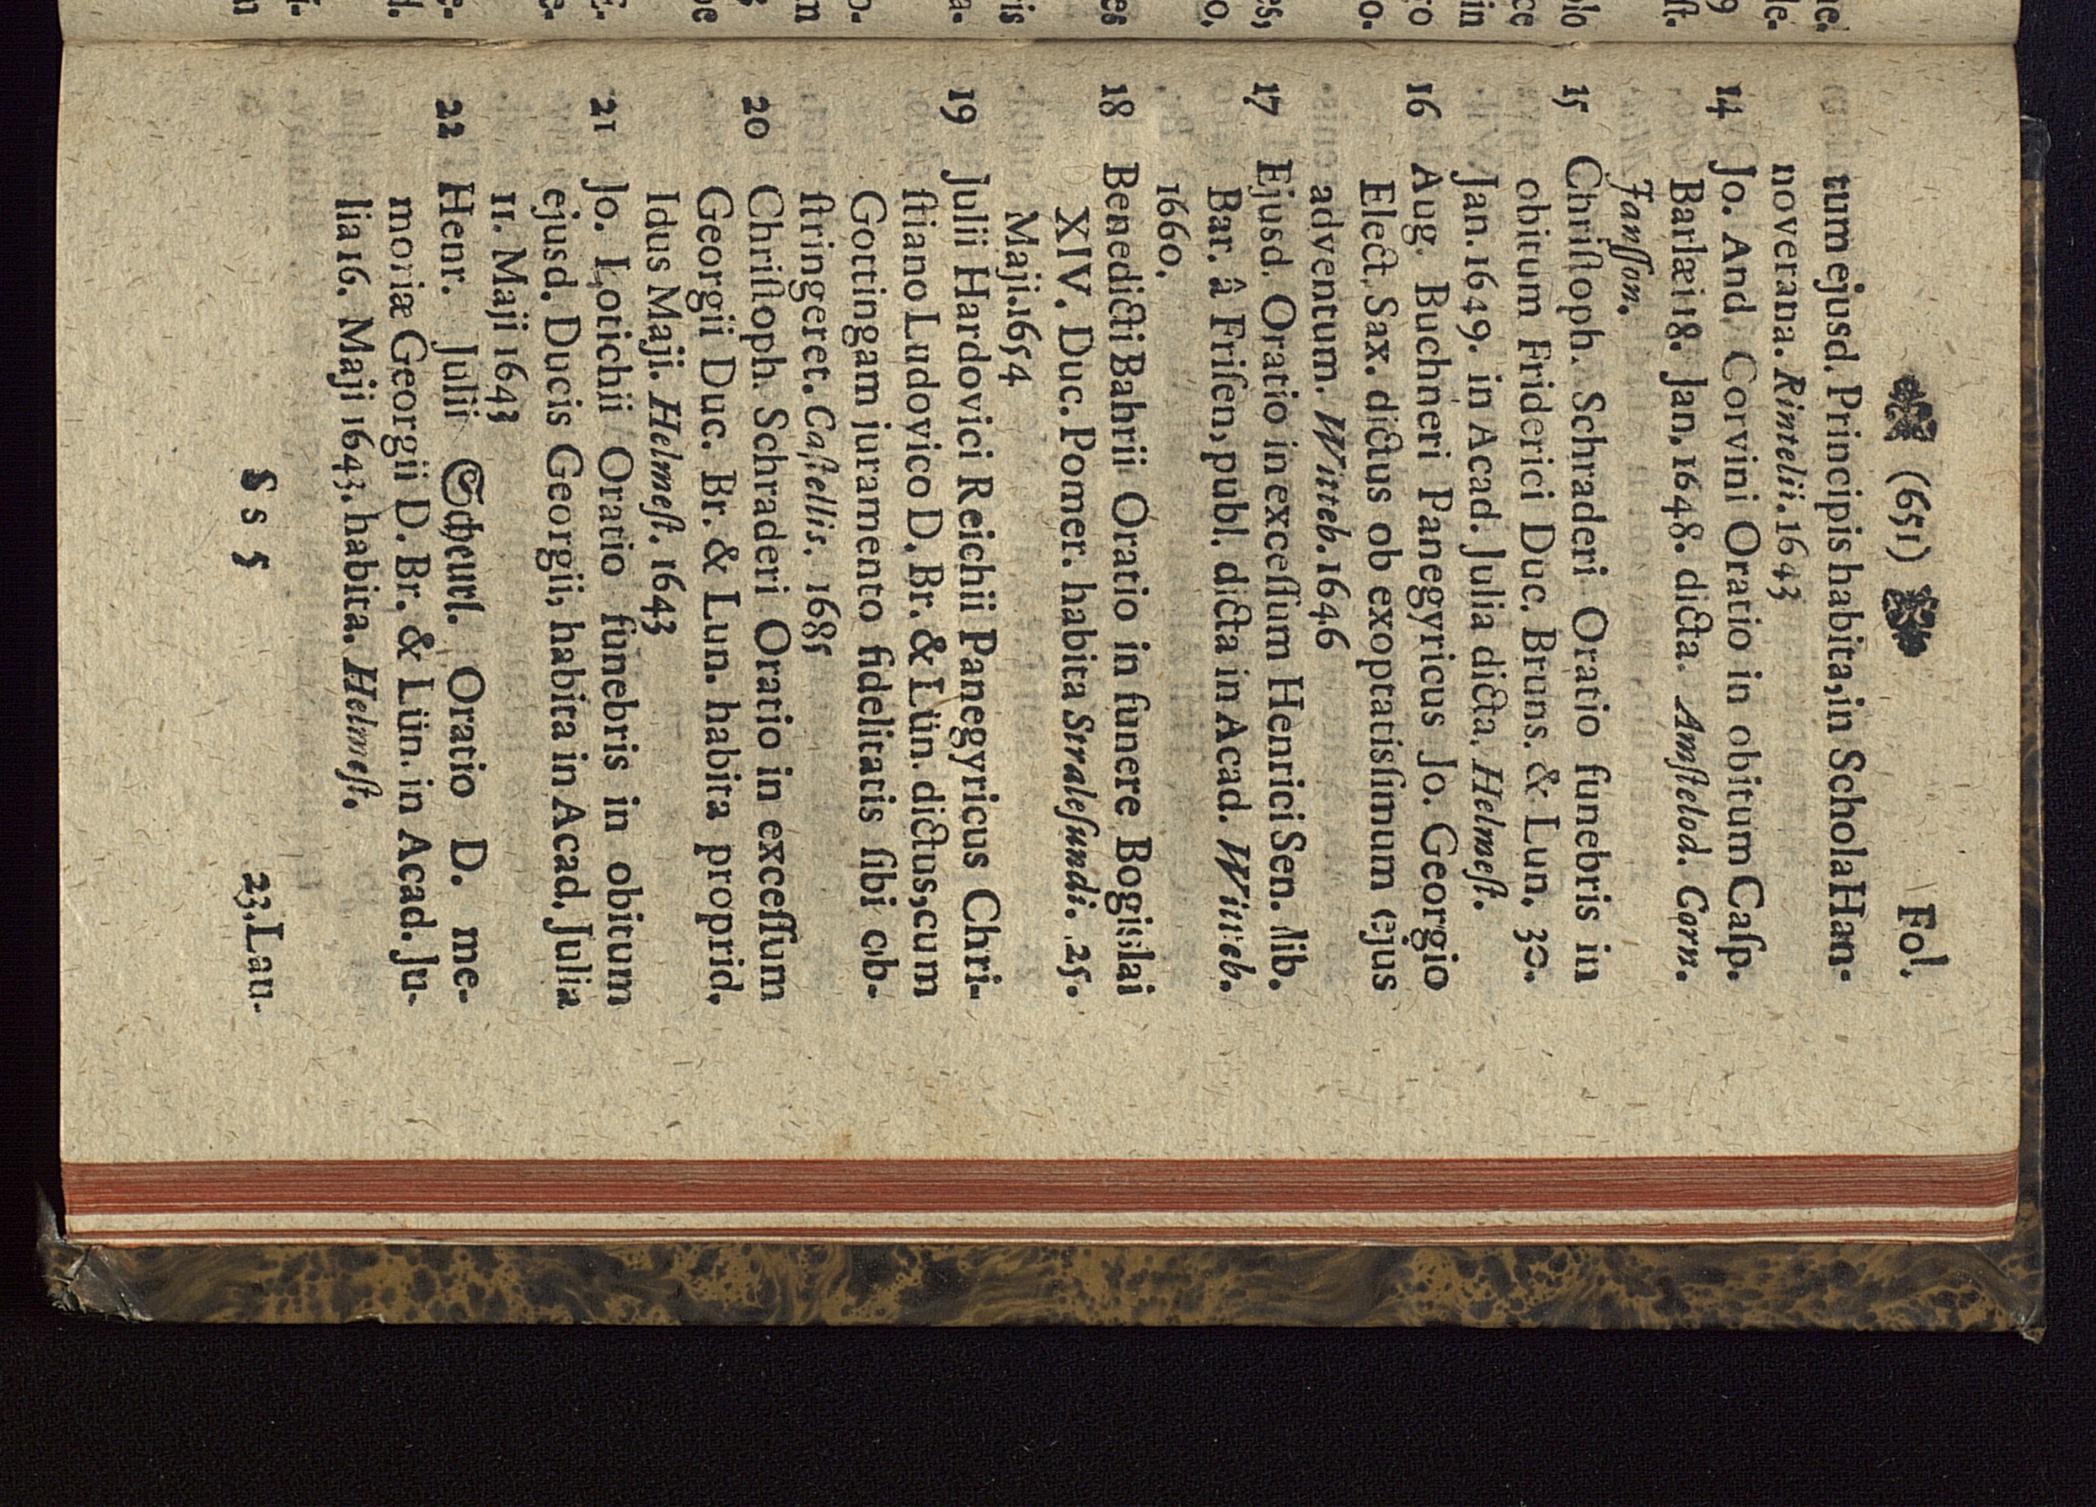 (651) Fol.
tum ejusd. Principis habita, in Schola Han-
noverana. Rintelii. 1643
14 Jo. And. Corvini Oratio in obitum Caſp.
Barlæi 18. Jan. 1648. dicta. Amſtelod. Corn.
Janſſon.
15 Chriſtoph. Schraderi Oratio funebris in
obitum Friderici Duc. Bruns. & Lun. 30.
Jan. 1649. in Acad. Julia dicta. Helmeſt.
16 Aug. Buchneri Panegyricus Jo. Georgio
Elect. Sax. dictus ob exoptatisſimum ejus
adventum. Witteb. 1646
17 Ejusd. Oratio in exceſſum Henrici Sen. lib.
Bar. â Friſen, publ. dicta in Acad. Witteb.
1660.
18 Benedicti Bahrii Oratio in funere Bogislai
XIV. Duc. Pomer. habita Straleſundi. 25.
Maji. 1654
19 Julii Hardovici Reichii Panegyricus Chri-
ſtiano Ludovico D. Br. & Lün. dictus, cum
Gottingam juramento fidelitatis ſibi ob-
ſtringeret. Caſtellis. 1685
20 Chriſtoph. Schraderi Oratio in exceſſum
Georgii Duc. Br. & Lun. habita proprid.
Idus Maji. Helmeſt. 1643
21 Jo. Lotichii Oratio funebris in obitum
ejusd. Ducis Georgii, habita in Acad. Julia
11. Maji 1643
22 Henr. Julii Scheurl. Oratio D. me-
moriæ Georgii D. Br. & Lün. in Acad. Ju-
lia 16. Maji 1643. habita. Helmeſt.
S s 5 23. Lau-